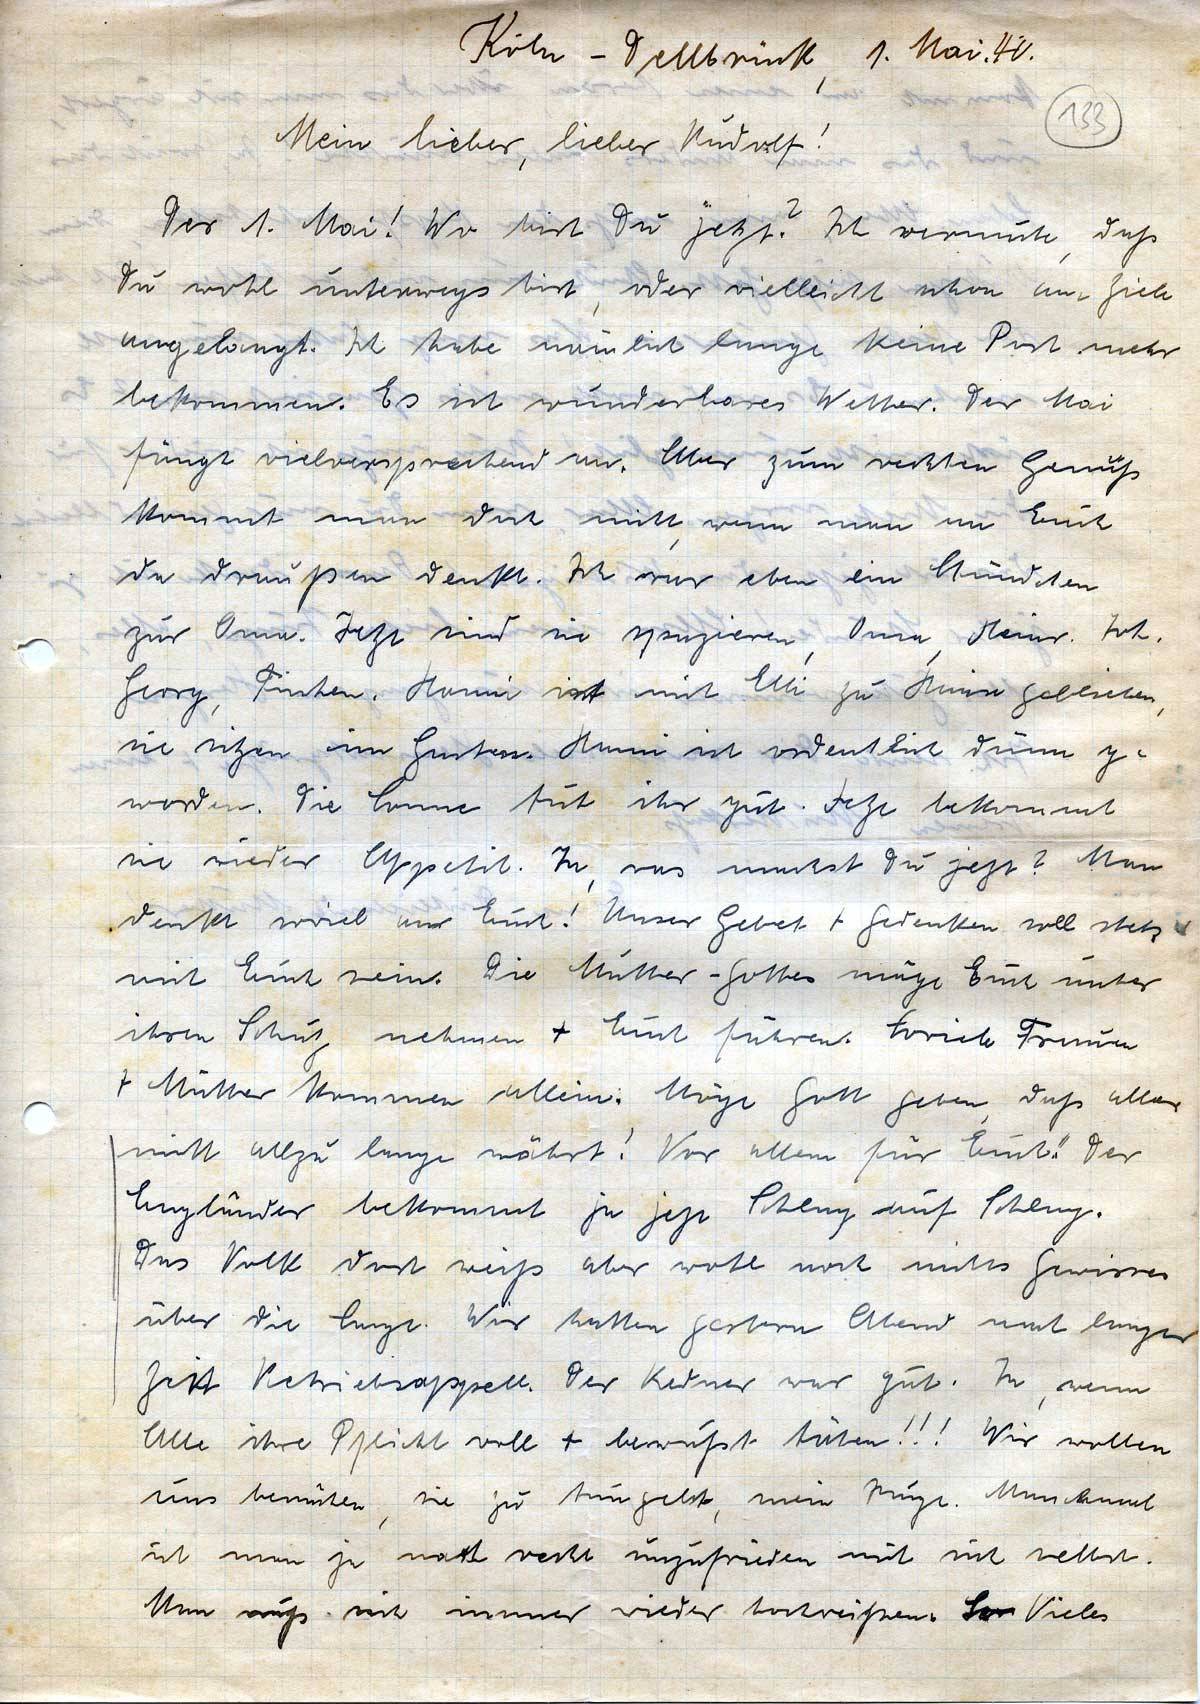 Köln - Dellbrück, 1. Mai. 40.
133
Mein lieber, lieber Rudolf!
Der 1. Mai! Wo bist Du jetzt? Ich vermute, daß
Du wohl unterwegs bist, oder vielleicht schon am Ziele
angelangt. Ich habe nämlich lange keine Post mehr
bekommen. Es ist wunderbares Wetter. Der Mai
fängt vielversprechend an. Aber zum rechten Genuß
kommt man doch nicht, wenn man an Euch
da draußen denkt. Ich war eben ein Stündchen
zur Oma. Jetzt sind sie spazieren, Oma, Heinr. Joh.
Georg, Finchen. Hanni ist mit Elli zu Hause geblieben,
sie sitzen im Garten. Hanni ist ordentlich dünn ge-
worden. Die Sonne tut ihr gut. Jetzt bekommt
sie wieder Appetit. Ja, was machst Du jetzt? Man
denkt soviel an Euch! Unser Gebet + Gedenken soll stets
mit Euch sein. Die Mutter-Gottes möge Euch unter
ihren Schutz nehmen + Euch führen. Soviele Frauen
+ Mütter kommen allein. Möge Gott geben, daß alles
nicht allzu lange währt! Vor allem für Euch!! Der
Engländer bekommt ja jetzt Schlag auf Schlag.
Das Volk dort weiß aber wohl noch nichts Gewisses
über die Lage. Wir hatten gestern Abend nach langer
Zeit Betriebsappell. Der Redner war gut. Ja, wenn
Alle ihre Pflicht voll + bewußt täten!!! Wir wollen
uns bemühen, sie zu tun, gelt, mein Junge. Manchmal
ist man ja recht unzufrieden mit sich selbst.
Man muß sich immer wieder hochreißen. Vieles